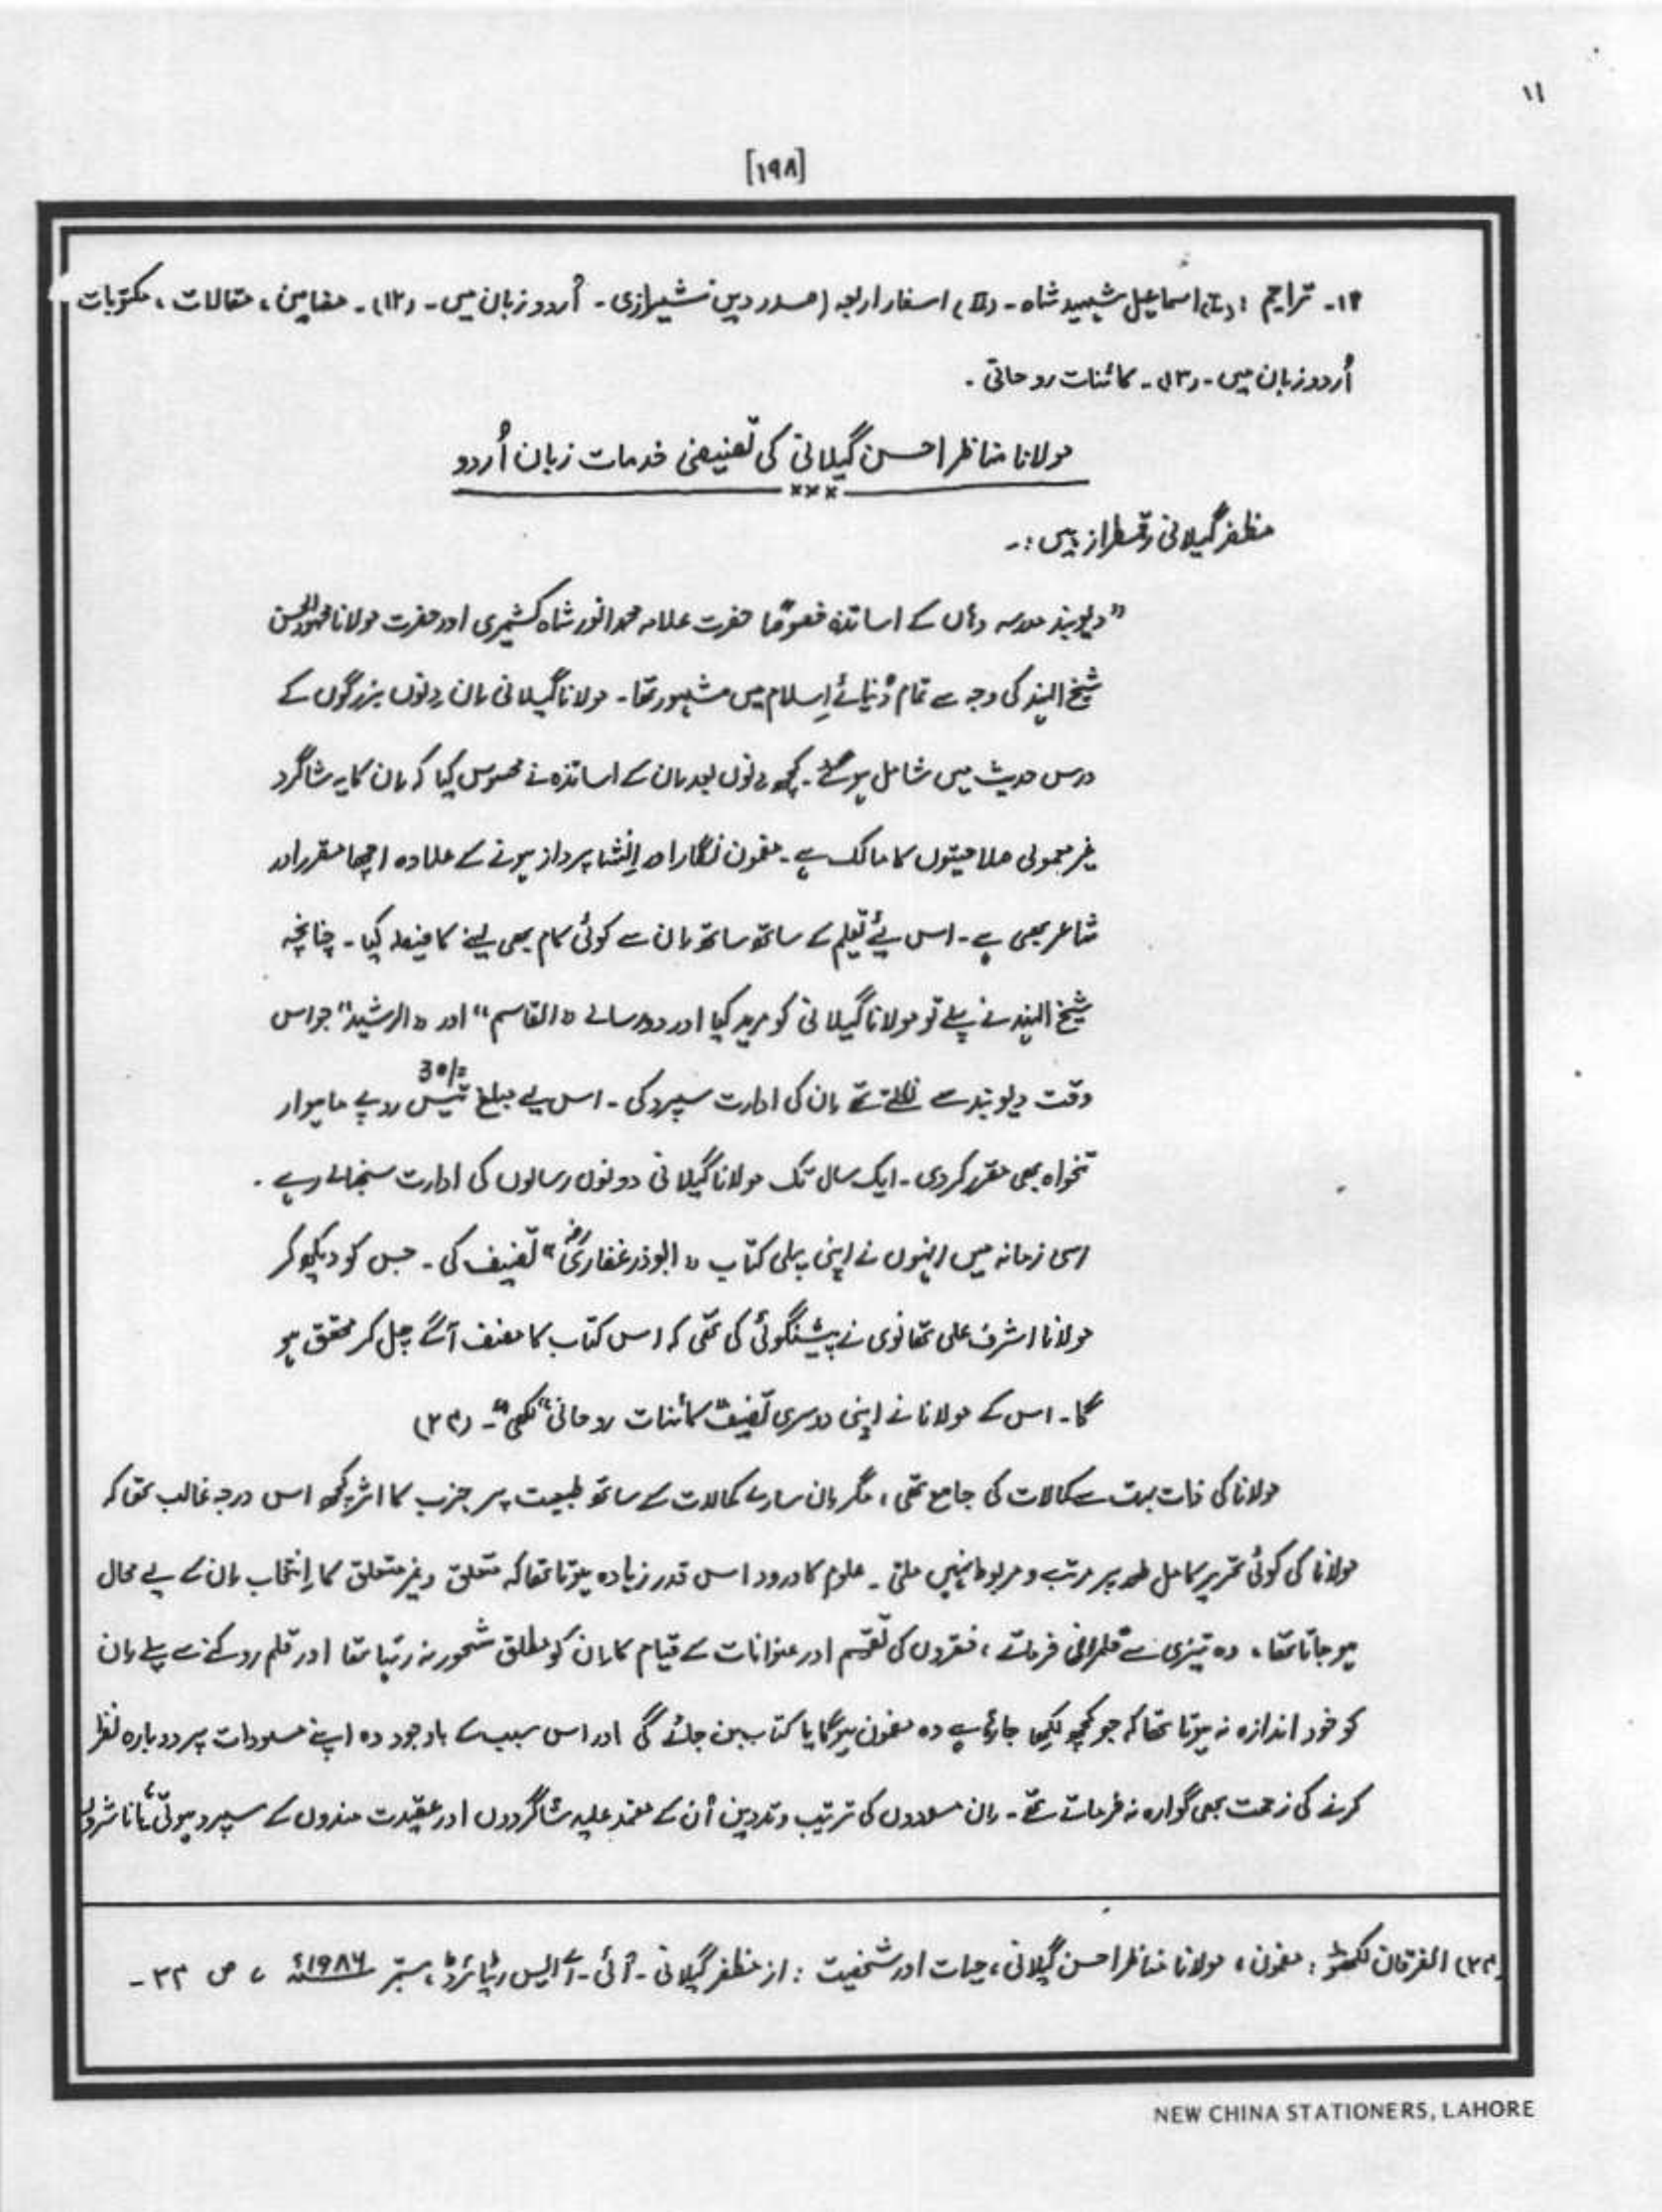 ۱۱
[۱۹۸]
۱۲۔ تراجم : (I) اسماعیل شہید شاہ ۔ (II) اسفار اربعہ (صدر دین شیرازی ۔ اُردو زبان میں ۔ (۱۲)۔ مضامین ، مقالات ، مکتوبات
اُردو زبان میں ۔ (۱۳)۔ کائنات روحانی ۔
مولانا مناظر احسن گیلانی کی تصنیفی خدمات زبان اُردو
×××
مظفر گیلانی رقمطراز ہیں :۔
”دیوبند مدرسہ وہاں کے اساتذہ خصوصًا حضرت علامہ محمد انور شاہ کشمیری اور حضرت مولانا محمود الحسن
شیخ الہند کی وجہ سے تمام دُنیائے اِسلام میں مشہور تھا ۔ مولانا گیلانی اِن دونوں بزرگوں کے
درس حدیث میں شامل ہو گئے ۔ کچھ دنوں بعد اِن کے اساتذہ نے محسوس کیا کہ اِن کا یہ شاگرد
غیر معمولی صلاحیتوں کا مالک ہے ۔ مضمون نگار اور اِنشا پرداز ہونے کے علاوہ اچھا مقرر اور
شاعر بھی ہے ۔ اس لئے تعلیم کے ساتھ ساتھ اِن سے کوئی کام بھی لینے کا فیصلہ کیا ۔ چنانچہ
شیخ الہند نے پہلے تو مولانا گیلانی کو مرید کیا اور دو رسالے ”القاسم“ اور ”الرشید“ جو اس
وقت دیوبند سے نکلتے تھے اِن کی ادارت سپرد کی ۔ اس لیے مبلغ تیس 30/= روپے ماہوار
تنخواہ بھی مقرر کر دی ۔ ایک سال تک مولانا گیلانی دونوں رسالوں کی ادارت سنبھالے رہے ۔
اسی زمانہ میں اِنہوں نے اپنی پہلی کتاب ”ابوذر غفاریؓ“ تصنیف کی ۔ جس کو دیکھ کر
مولانا اشرف علی تھانوی نے پیشنگوئی کی تھی کہ اس کتاب کا مصنف آگے چل کر محقق ہو
گا ۔ اس کے مولانا نے اپنی دوسری تصنیف ”کائنات روحانی“ لکھی“۔ (۲۳)
مولانا کی ذات بہت سے کمالات کی جامع تھی ، مگر اِن سارے کمالات کے ساتھ طبیعت پر جزب کا اثر کچھ اس درجہ غالب تھا کہ
مولانا کی کوئی تحریر کامل طور پر مرتب و مربوط نہیں ملتی ۔ علوم کا ورود اس قدر زیادہ ہوتا تھا کہ متعلق و غیر متعلق کا اِنتخاب اِن کے لیے محال
ہو جاتا تھا ، وہ تیزی سے قلمرانی فرماتے ، فقروں کی تقسیم اور عنوانات کے قیام کا اِن کو مطلق شعور نہ رہتا تھا اور قلم روکنے سے پہلے اِن
کو خود اندازہ نہ ہوتا تھا کہ جو کچھ لکھا جا رہا ہے وہ مضمون ہو گا یا کتاب بن جائے گی اور اس سبب کے باوجود وہ اپنے مسودات پر دوبارہ نظر
کرنے کی زحمت بھی گوارہ نہ فرماتے تھے ۔ اِن مسودوں کی ترتیب و تدوین اُن کے معتمد علیہ شاگردوں اور عقیدت مندوں کے سپرد ہوتی ، یا ناشروں
(۲۳) الفرقان لکھنؤ : مضمون ، مولانا مناظر احسن گیلانی ، حیات اور شخصیت : از مظفر گیلانی ۔ آئی ۔ اے ایس ریٹائرڈ ، ستمبر ۱۹۸۶ء ، ص ۲۳ ۔
NEW CHINA STATIONERS, LAHORE